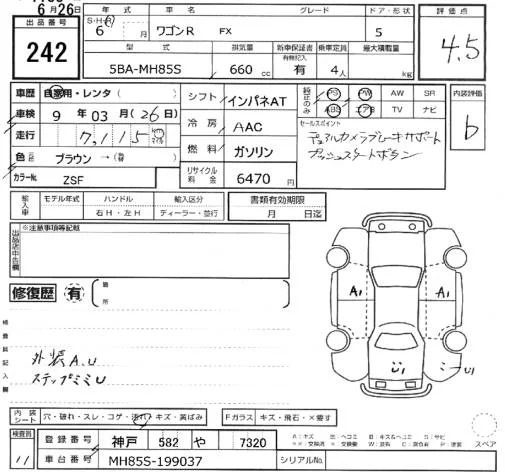 6月26日
出品番号
242
年式 車名 グレード ドア・形状 評価点
S・H・R
6 月 ワゴンR FX 5
4.5
型式 排気量 新車保証書 乗車定員 最大積載量
有無記入
5BA-MH85S 660 cc 有 4人 kg
車歴 自家用・レンタ( )
車検 9年03月(26日)
走行 7,115 km マイル
色 ブラウン→( )
カラーNo. ZSF
シフト インパネAT
冷房 AAC
燃料 ガソリン
リサイクル料金 6470円
純正のみ PS PW AW SR
ABS エアB TV ナビ
セールスポイント
デュアルカメラブレーキサポート
プッシュスタートボタン
内装評価
b
輸入車 モデル年式 ハンドル 輸入区分 書類有効期限
右H・左H ディーラー・並行 月 日迄
出品店申告欄 ※注意事項等記載
修復歴 有 箇所
検査員記入欄
外装A.U
ステップミミU
A1 A1
U U
内装シート 穴・破れ・スレ・コゲ・汚れ・キズ・黄ばみ Fガラス キズ・飛石・×要す
検査員
11
登録番号 神戸 582 や 7320
車台番号 MH85S-199037 シリアルNo.
A:キズ U:ヘコミ B:キズ&ヘコミ S:サビ
スペア